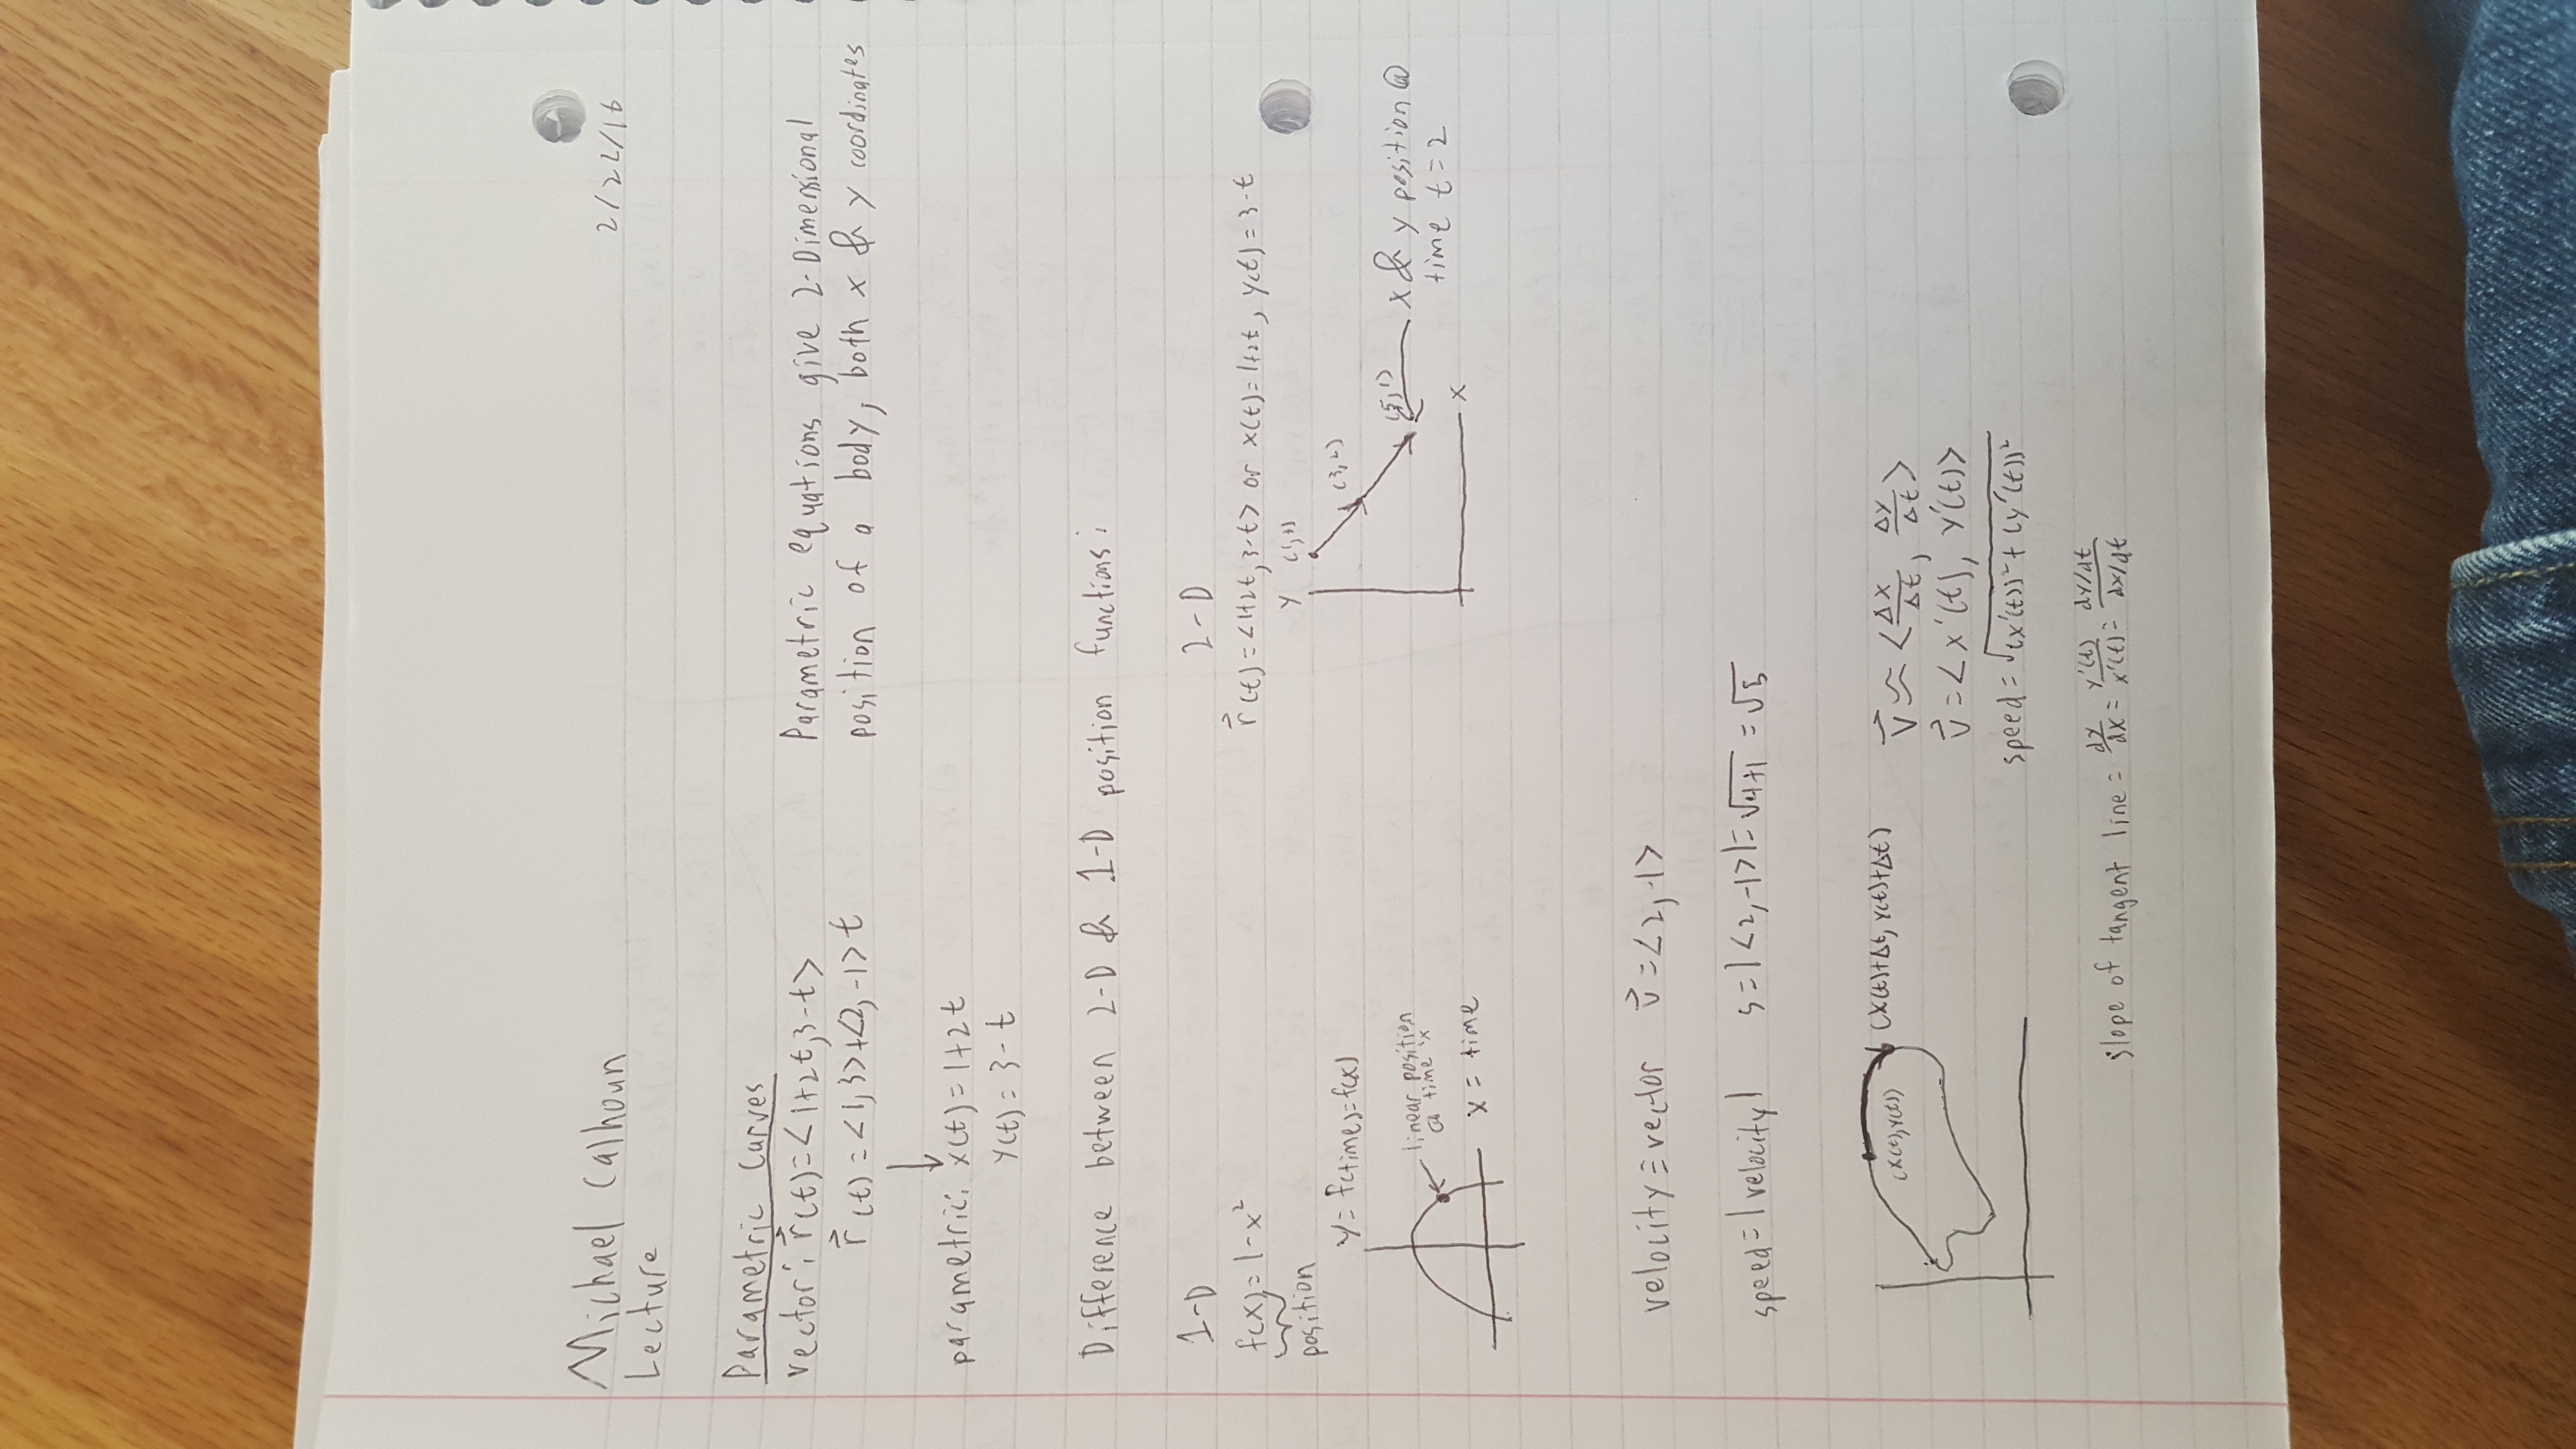 Michael Calhoun 2/22/16
Lecture
Parametric Curves
vector: r⃗(t)=<1+2t,3-t> Parametric equations give 2-Dimensional
r⃗(t)=<1,3>+<2,-1>t position of a body, both x & y coordinates
parametric: x(t)=1+2t
y(t)=3-t
Difference between 2-D & 1-D position functions:
1-D 2-D
f(x)=1-x² r⃗(t)=<1+2t,3-t> or x(t)=1+2t, y(t)=3-t
position
y=f(time)=f(x)
linear position
@ time x
x=time
y
(1,3)
(3,2)
(5,1)
x & y position @
time t=2
x
velocity≡vector v⃗=<2,-1>
speed=|velocity| s=|<2,-1>|=√4+1=√5
(x(t),y(t))
(x(t)+Δt, y(t)+Δt)
v⃗≈<Δx/Δt, Δy/Δt>
v⃗=<x'(t), y'(t)>
speed=√(x'(t))²+(y'(t))²
slope of tangent line = dy/dx = y'(t)/x'(t) = dy/dt / dx/dt